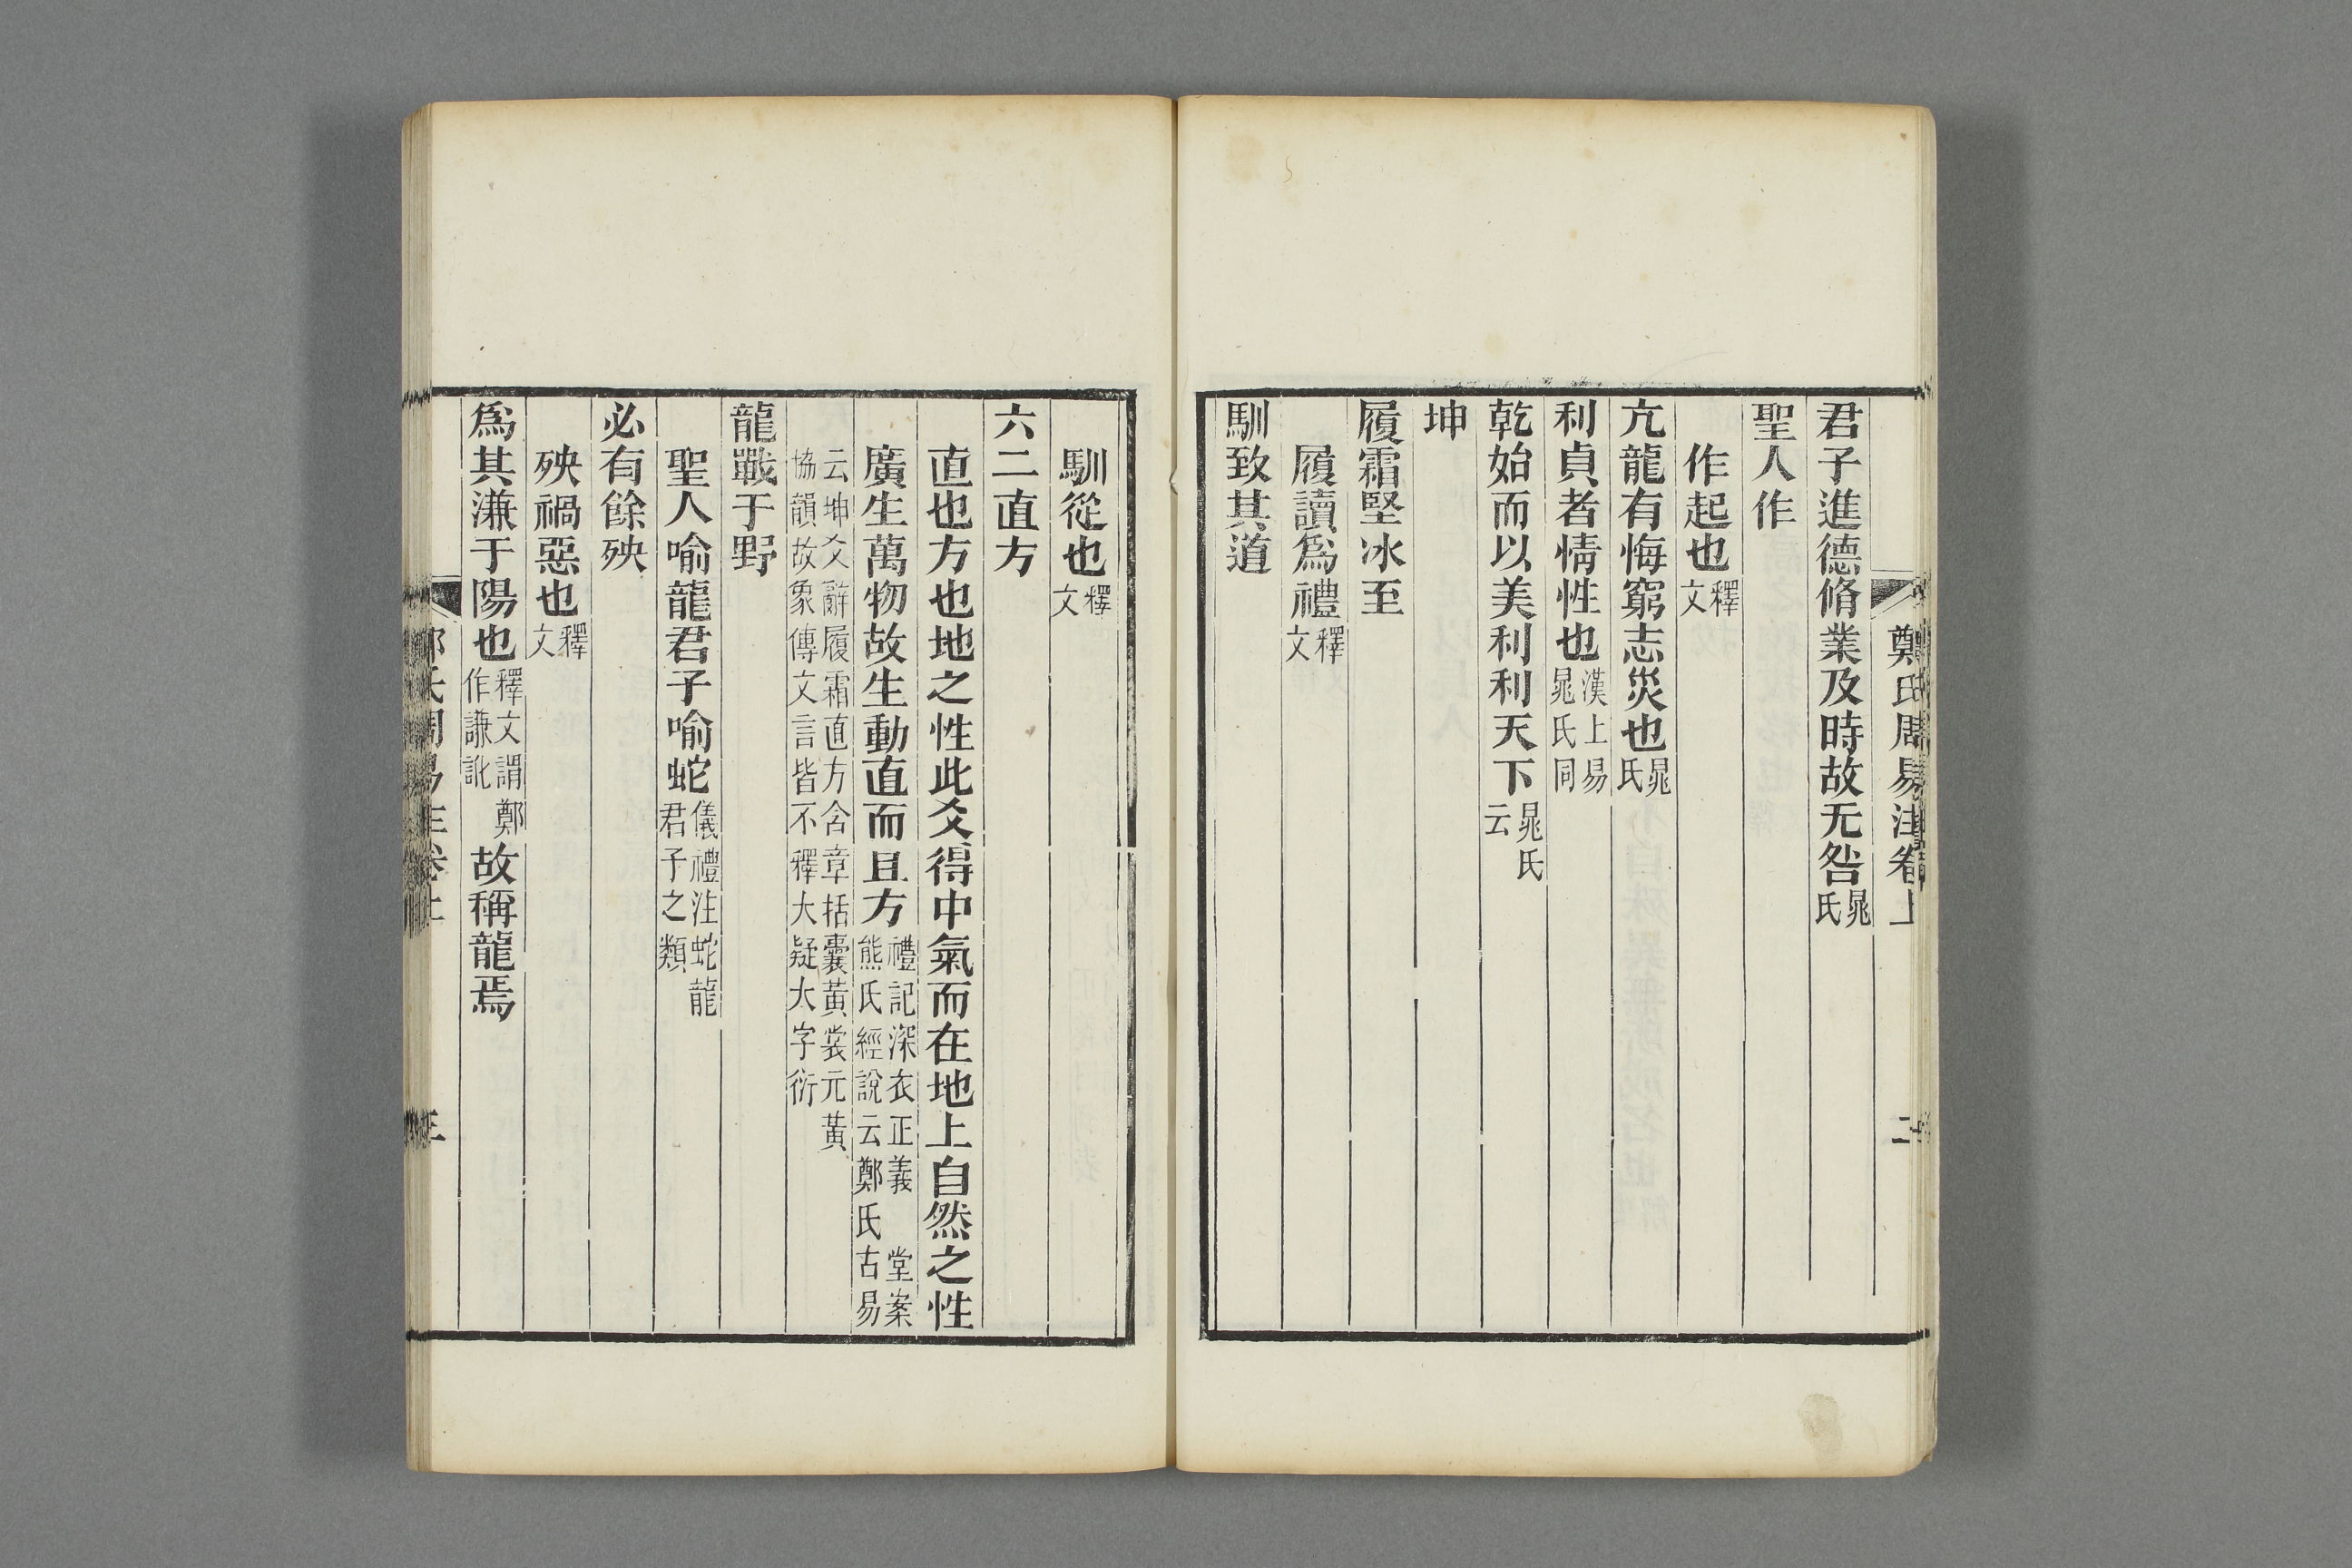 鄭氏周易注卷上 二
君子進德脩業及時故无咎晁氏
聖人作
作起也釋文
亢龍有悔窮志災也晁氏
利貞者情性也漢上易晁氏同
乾始而以美利利天下晁氏云
坤
履霜堅冰至
履讀爲禮釋文
馴致其道
馴從也釋文
六二直方
直也方也地之性此爻得中氣而在地上自然之性
廣生萬物故生動直而且方禮記深衣正義 堂案熊氏經說云鄭氏古易
云坤爻辭履霜直方含章括囊黃裳元黃協韻故象傳文言皆不釋大疑大字衍
龍戰于野
聖人喻龍君子喻蛇儀禮注蛇龍君子之類
必有餘殃
殃禍惡也釋文
爲其溓于陽也釋文謂鄭作謙訛故稱龍焉
氏周易注卷上 三